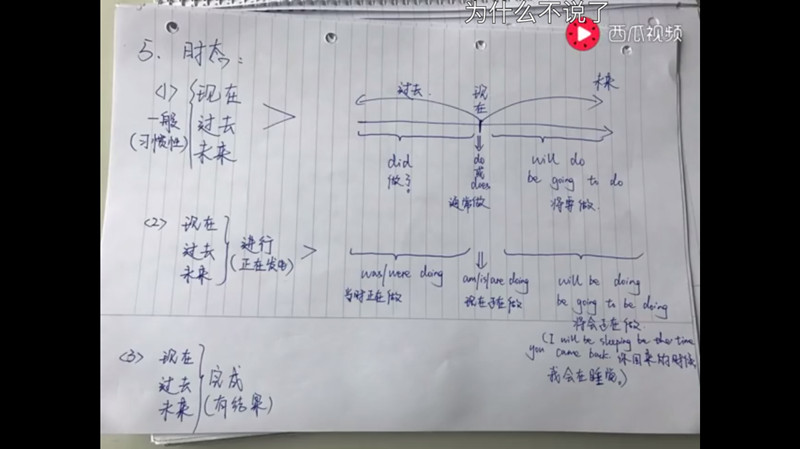 为什么不说了
西瓜视频
5. 时态:
<1> 现在
一般 过去
(习惯性) 未来
过去 现在 未来
did
做了
do
或
does
通常做
will do
be going to do
将要做
<2> 现在
过去 进行
未来 (正在发生)
was/were doing
当时正在做
am/is/are doing
现在正在做
will be doing
be going to be doing
将会正在做
(I will be sleeping be the time
you came back 你回来的时候
我会在睡觉。)
<3> 现在
过去 完成
未来 (有结果)